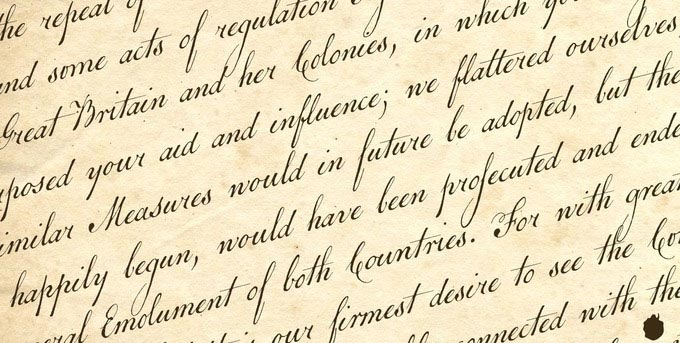 the repeal of
and some acts of regulation
Great Britain and her Colonies, in which you
posed your aid and influence; we flattered ourselves,
imilar Measures would in future be adopted, but the
happily begun, would have been proſecuted and ende
eral Emolument of both Countries. For with great
our firmest desire to see the Co
connected with the